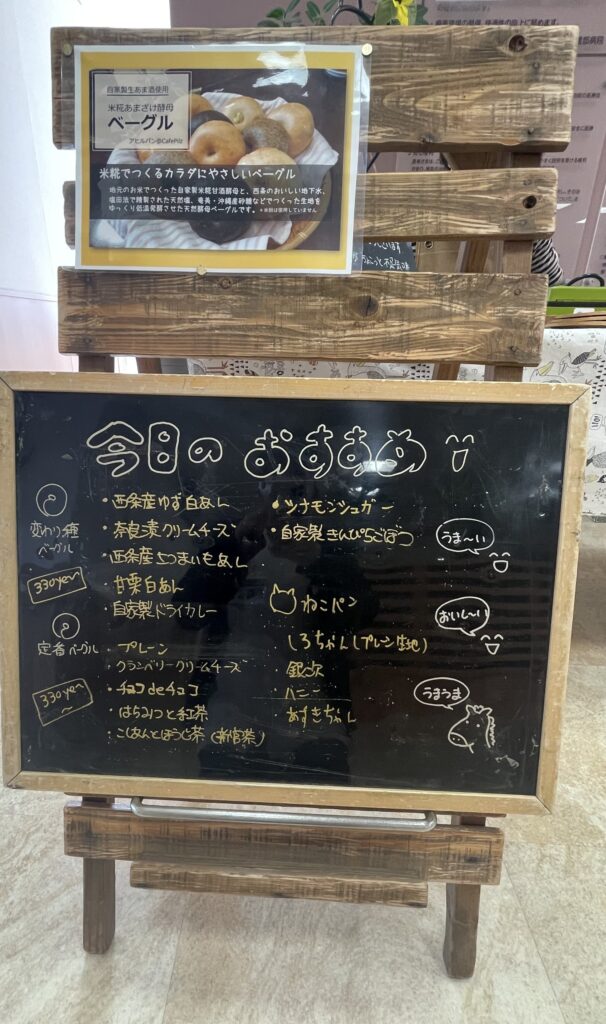 自家製生あま酒使用
米糀あまざけ酵母
ベーグル
アヒルパン@CafePilz
米糀でつくるカラダにやさしいベーグル
地元のお米でつくった自家製米糀甘酒酵母と、西条のおいしい地下水、
塩田法で精製された天然塩、奄美・沖縄産砂糖などでつくった生地を
ゆっくり低温発酵させた天然酵母ベーグルです。
今日のおすすめ
変わり種
ベーグル
330yen
・西条産ゆず白あん
・奈良漬クリームチーズ
・西条産さつまいもあん
・甘栗白あん
・自家製ドライカレー
・シナモンシュガー
・自家製きんぴらごぼう
定番ベーグル
330yen
～
・プレーン
・クランベリークリームチーズ
・チョコdeチョコ
・はちみつと紅茶
・こしあんとほうじ茶
ねこパン
しろちゃん(プレーン生地)
・銀次
・ハニー
・あずきちゃん
うま～い
おいし～い
うまうま